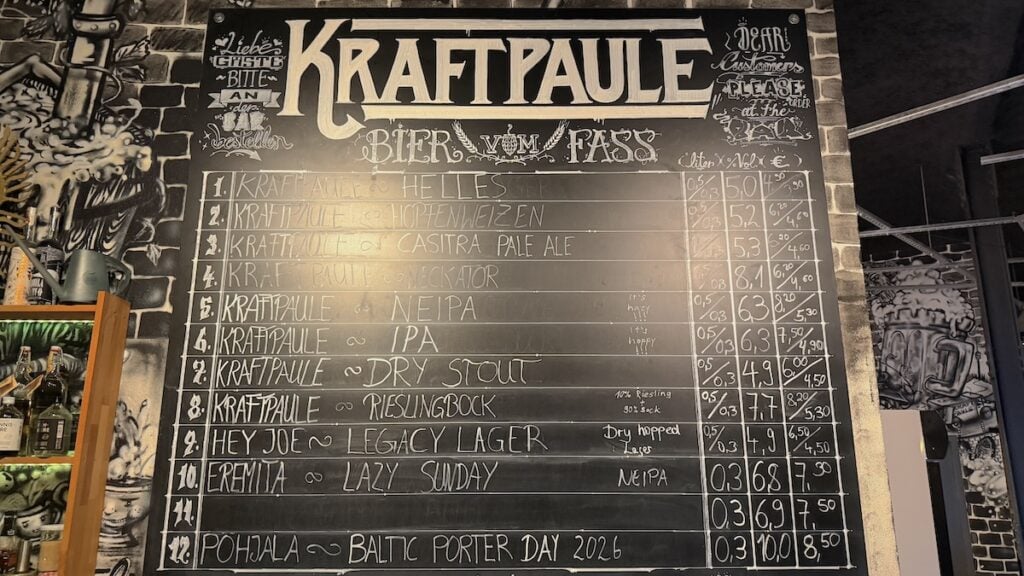 Liebe
GÄSTE
BITTE
AN
der
BAR
bestellen
KRAFTPAULE
BIER VOM FASS
DEAR
Customers
PLEASE
ORDER
at the
(Liter × % Vol × €)
1. KRAFTPAULE ~ HELLES 0,5/0,3 5,0
2. KRAFTPAULE ~ HOPFENWEIZEN 5,2 6,20/4,60
3. KRAFTPAULE ~ CASITRA PALE ALE 5,3 6,20/4,60
4. KRAFTPAULE ~ NECKATOR 8,1
5. KRAFTPAULE ~ NEIPA 0,5/0,3 6,3 8,20/5,30
6. KRAFTPAULE ~ IPA hoppy 0,5/0,3 6,3 7,50/4,90
7. KRAFTPAULE ~ DRY STOUT 0,5/0,3 4,9 6,00/4,50
8. KRAFTPAULE ~ RIESLINGBOCK 10% Riesling 90% Bock 0,5/0,3 7,7 8,20/5,30
9. HEY JOE ~ LEGACY LAGER Dry hopped Lager 0,5/0,3 4,9 6,50/4,50
10. EREMITA ~ LAZY SUNDAY NEIPA 0,3 6,8 7,50
11. 0,3 6,9 7,50
12. POHJALA ~ BALTIC PORTER DAY 2026 0,3 10,0 8,50